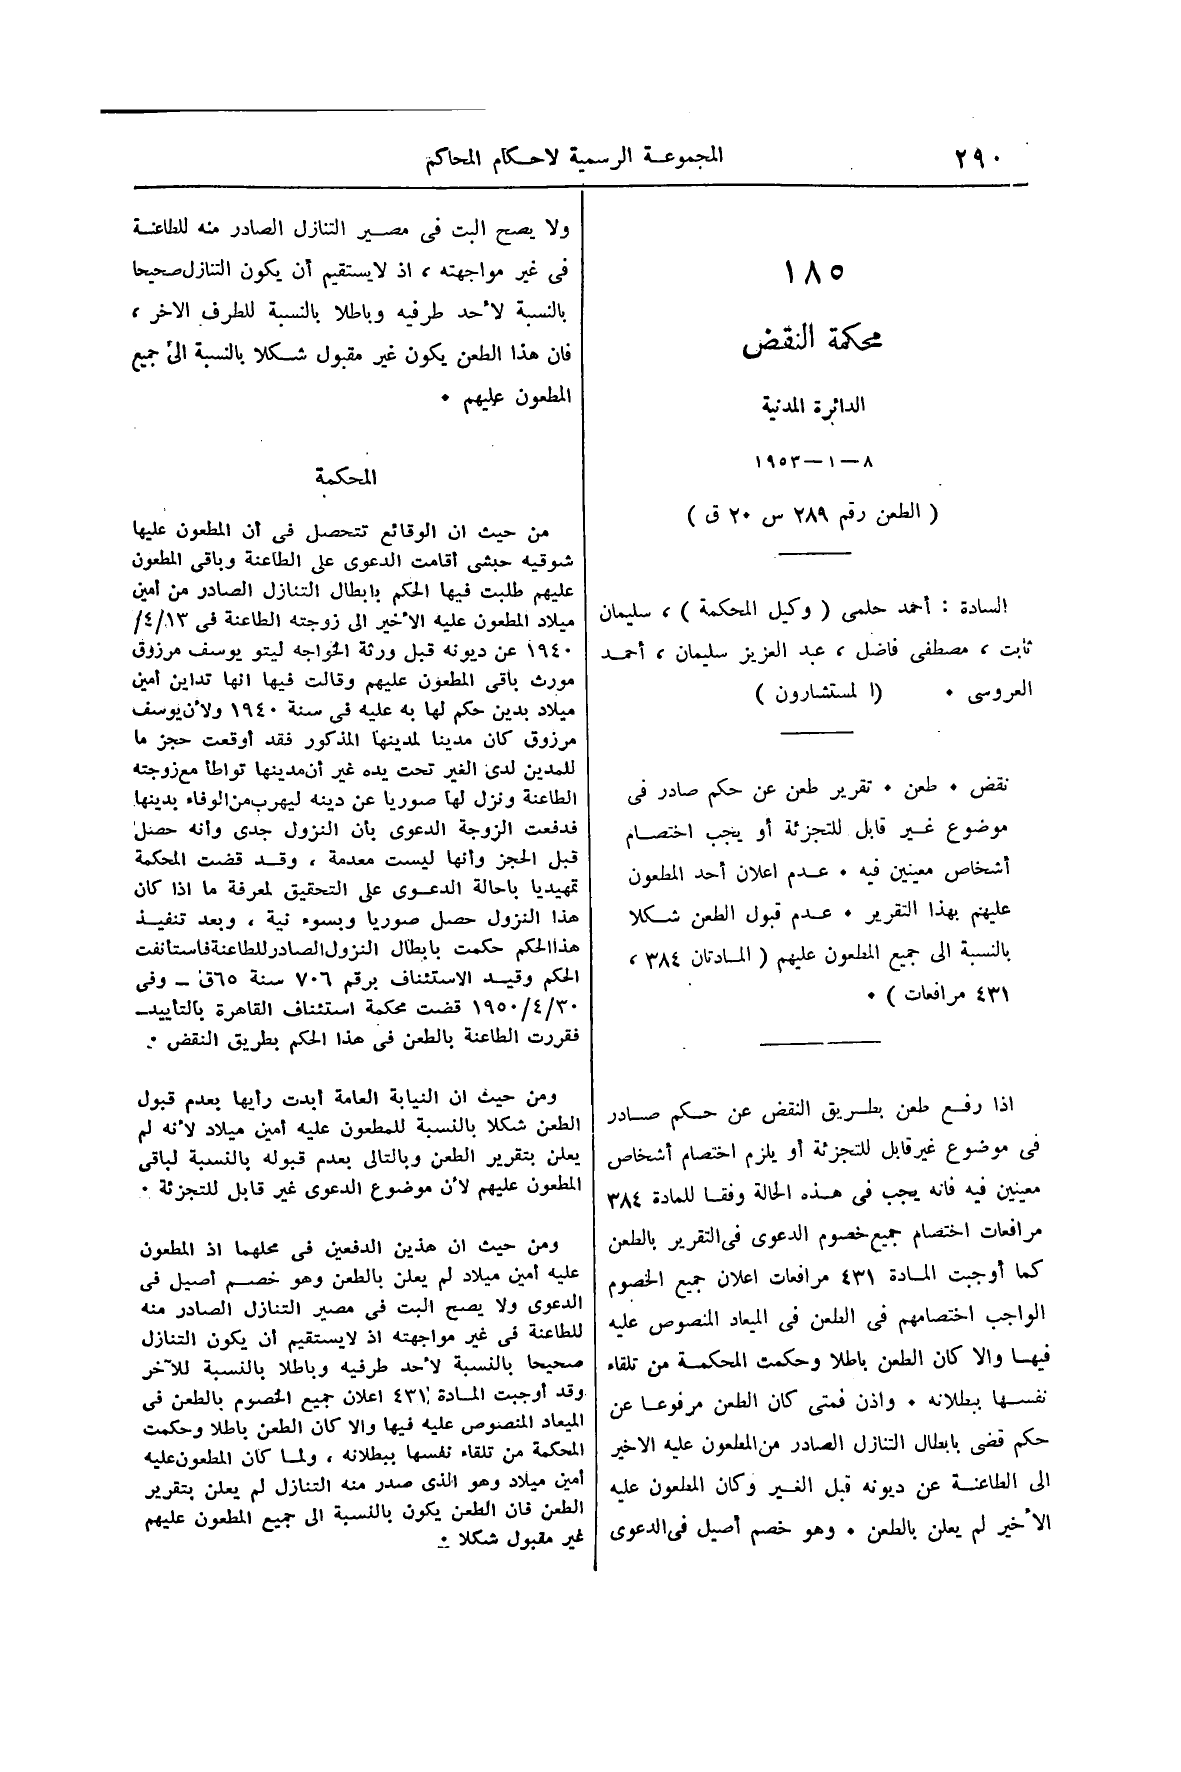 ٢٩٠
المجموعة الرسمية لاحكام المحاكم
١٨٥
محكمة النقض
الدائرة المدنية
٨ — ١ — ١٩٥٣
( الطعن رقم ٢٨٩ س ٢٠ ق )
السادة : أحمد حلمى ( وكيل المحكمة ) ، سليمان
ثابت ، مصطفى فاضل ، عبد العزيز سليمان ، أحمد
العروسى . (المستشارون )
نقض . طعن . تقرير طعن عن حكم صادر فى
موضوع غير قابل للتجزئة أو يجب اختصام
أشخاص معينين فيه . عدم اعلان أحد المطعون
عليهم بهذا التقرير . عدم قبول الطعن شكلا
بالنسبة الى جميع المطعون عليهم ( المادتان ٣٨٤ ،
٤٣١ مرافعات ) .
اذا رفع طعن بطريق النقض عن حكم صادر
فى موضوع غير قابل للتجزئة أو يلزم اختصام أشخاص
معينين فيه فانه يجب فى هذه الحالة وفقا للمادة ٣٨٤
مرافعات اختصام جميع خصوم الدعوى فى التقرير بالطعن
كما أوجبت المادة ٤٣١ مرافعات اعلان جميع الخصوم
الواجب اختصامهم فى الطعن فى الميعاد المنصوص عليه
فيها والا كان الطعن باطلا وحكمت المحكمة من تلقاء
نفسها ببطلانه . واذن فمتى كان الطعن مرفوعا عن
حكم قضى بابطال التنازل الصادر من المطعون عليه الاخير
الى الطاعنة عن ديونه قبل الغير وكان المطعون عليه
الأخير لم يعلن بالطعن . وهو خصم أصيل فى الدعوى
ولا يصح البت فى مصير التنازل الصادر منه للطاعنة
فى غير مواجهته ، اذ لا يستقيم أن يكون التنازل صحيحا
بالنسبة لأحد طرفيه وباطلا بالنسبة للطرف الاخر ،
فان هذا الطعن يكون غير مقبول شكلا بالنسبة الى جميع
المطعون عليهم .
المحكمة
من حيث ان الوقائع تتحصل فى أن المطعون عليها
شوقيه حبشى أقامت الدعوى على الطاعنة وباقى المطعون
عليهم طلبت فيها الحكم بابطال التنازل الصادر من أمين
ميلاد المطعون عليه الأخير الى زوجته الطاعنة فى ١٣/٤/
١٩٤٠ عن ديونه قبل ورثة الخواجه ليتو يوسف مرزوق
مورث باقى المطعون عليهم وقالت فيها انها تداين أمين
ميلاد بدين حكم لها به عليه فى سنة ١٩٤٠ ولأن يوسف
مرزوق كان مدينا لمدينها المذكور فقد أوقعت حجز ما
للمدين لدى الغير تحت يده غير أن مدينها تواطأ مع زوجته
الطاعنة ونزل لها صوريا عن دينه ليهرب من الوفاء بدينها
فدفعت الزوجة الدعوى بأن النزول جدى وأنه حصل
قبل الحجز وأنها ليست معدمة ، وقد قضت المحكمة
تمهيديا باحالة الدعوى على التحقيق لمعرفة ما اذا كان
هذا النزول حصل صوريا وبسوء نية ، وبعد تنفيذ
هذا الحكم حكمت بابطال النزول الصادر للطاعنة فاستأنفت
الحكم وقيد الاستئناف برقم ٧٠٦ سنة ٦٥ق – وفى
٣٠/٤/١٩٥٠ قضت محكمة استئناف القاهرة بالتأييد–
فقررت الطاعنة بالطعن فى هذا الحكم بطريق النقض .
ومن حيث ان النيابة العامة أبدت رأيها بعدم قبول
الطعن شكلا بالنسبة للمطعون عليه أمين ميلاد لأنه لم
يعلن بتقرير الطعن وبالتالى بعدم قبوله بالنسبة لباقى
المطعون عليهم لأن موضوع الدعوى غير قابل للتجزئة .
ومن حيث ان هذين الدفعين فى محلهما اذ المطعون
عليه أمين ميلاد لم يعلن بالطعن وهو خصم أصيل فى
الدعوى ولا يصح البت فى مصير التنازل الصادر منه
للطاعنة فى غير مواجهته اذ لا يستقيم أن يكون التنازل
صحيحا بالنسبة لأحد طرفيه وباطلا بالنسبة للآخر
وقد أوجبت المادة ٤٣١ اعلان جميع الخصوم بالطعن فى
الميعاد المنصوص عليه فيها والا كان الطعن باطلا وحكمت
المحكمة من تلقاء نفسها ببطلانه ، ولما كان المطعون عليه
أمين ميلاد وهو الذى صدر منه التنازل لم يعلن بتقرير
الطعن فان الطعن يكون بالنسبة الى جميع المطعون عليهم
غير مقبول شكلا .